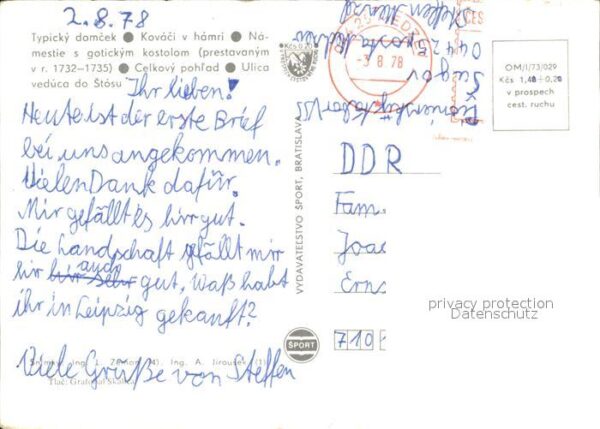 2.8.78
Typický domček ● Kováči v hámri ● Ná-
mestie s gotickým kostolom (prestavaným
v r. 1732—1735) ● Celkový pohľad ● Ulica
vedúca do Štósu
Ihr lieben!
Heute ist der erste Brief
bei uns angekommen.
Vielen Dank dafür.
Mir gefällt es hirr gut.
Die Landschaft gefällt mir
hir auch gut, Waß habt
ihr in Leipzig gekauft?
Viele Grüße von Steffen
Snímky: Ing. (4), Ing. A. Jiroušek (1)
Tlač: Grafobal Skalica
VYDAVATEĽSTVO ŠPORT, BRATISLAVA
ŠPORT
Kčs 0,20
-3.8.78
Steffen
04425
Šugov
Pionierský tábor VSS
OM/I/73/029
Kčs 1,40+0,20
v prospech
cest. ruchu
DDR
Fam.
Joac
Erns
710
privacy protection
Datenschutz